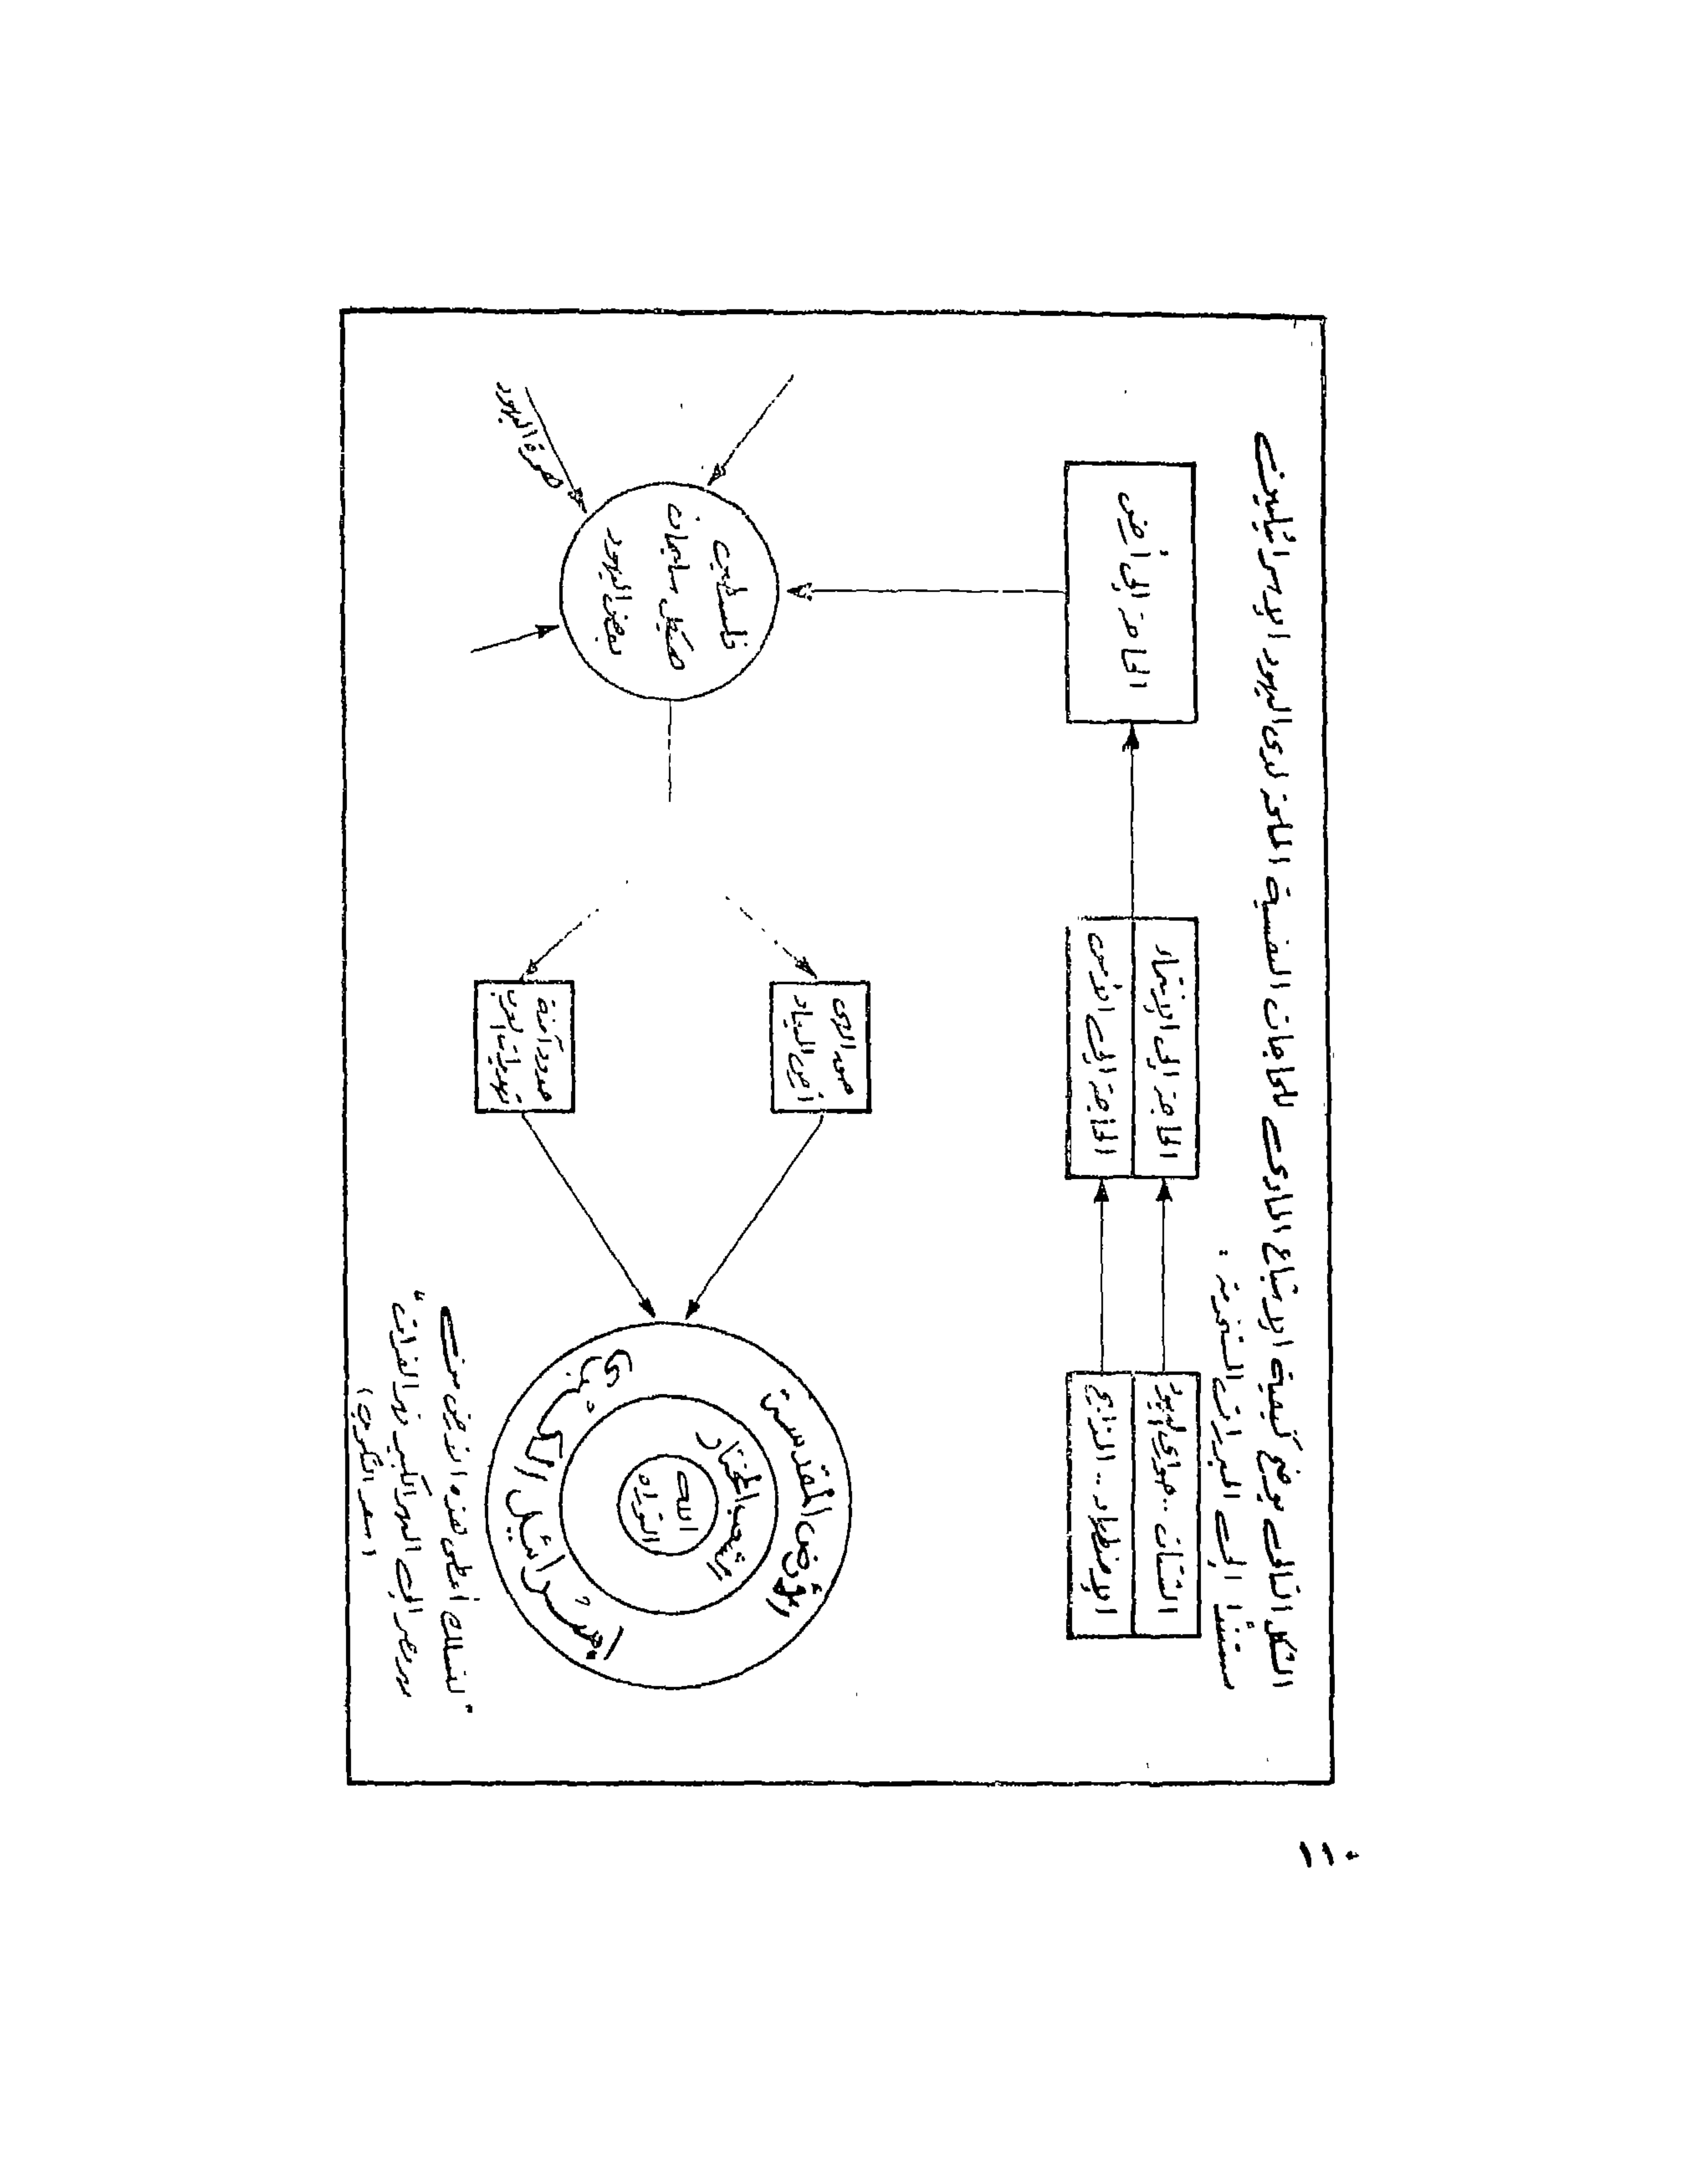 الشكل التالى يوضح كيفية الإشباع المادى للحاجات النفسية الملحة لدى اليهود الإسرائيليين
مستندًا إلى المبررات السفرية .
الشتات .. حوارى اليهود
الاضطهاد .. الذابح
الحاجة إلى الانتماء
الحاجة إلى الأمن
الحاجة إلى أرض
فلسطين
هيكل سليمان
بعض اليهود
هجرة اليهود
أرض الميعاد
حدود آمنة
الأرض المقدسة
الشعب المختار
الله
التوراه
إسرائيل الكبرى
" لنسلك أعطى هذه الأرض من
نهر مصر إلى النهر الكبير نهر الفرات "
( سفر التكوين )
١١٠